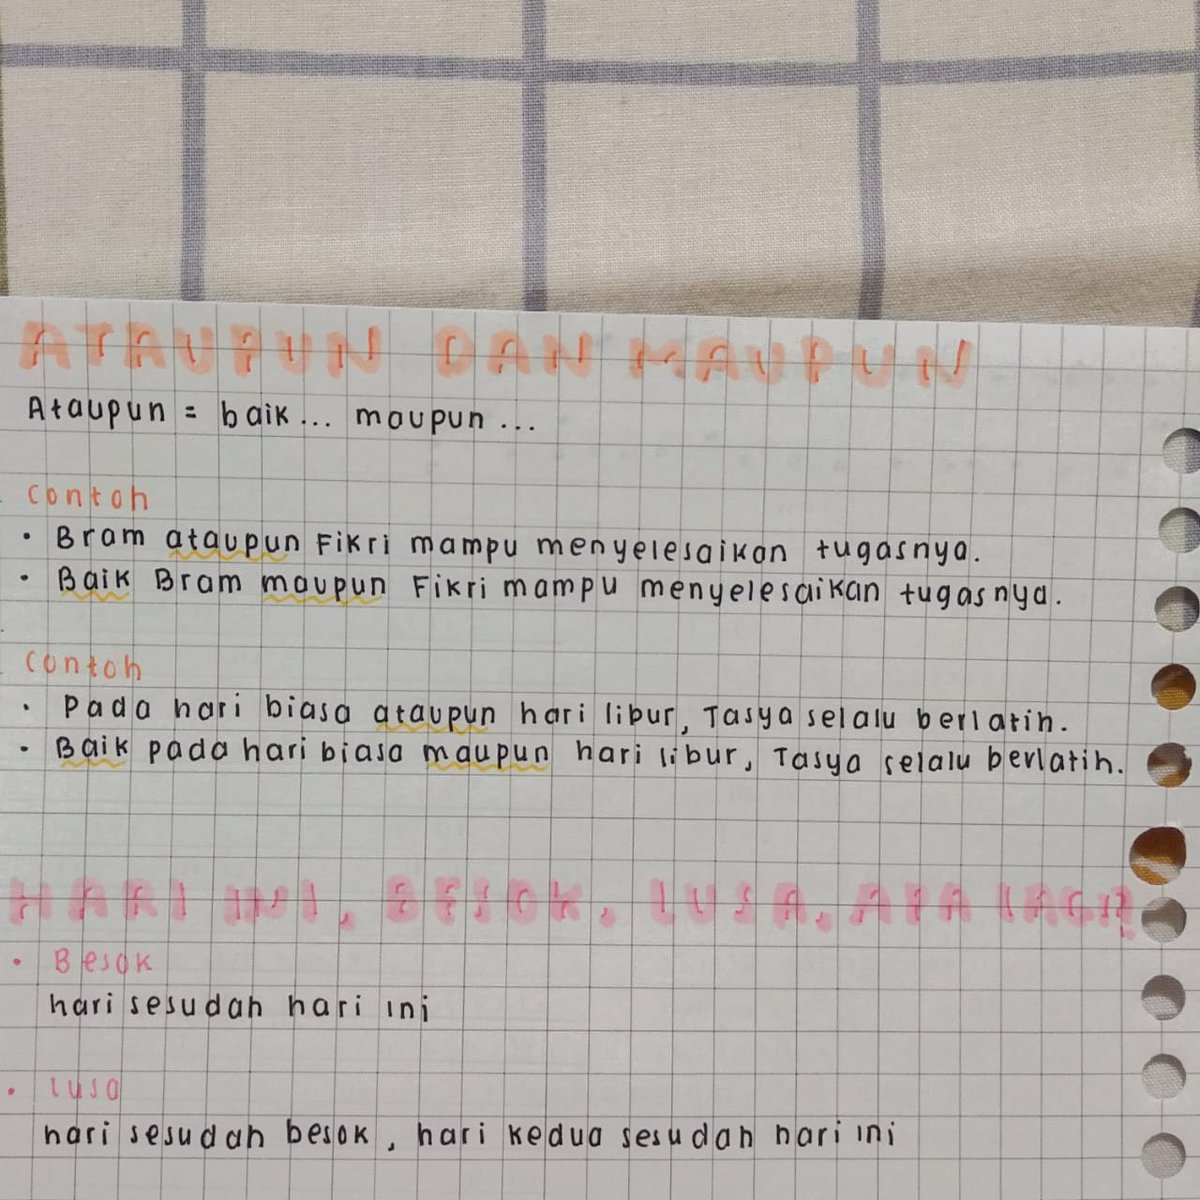 ATAUPUN DAN MAUPUN
Ataupun = baik... maupun...
Contoh
• Bram ataupun Fikri mampu menyelesaikan tugasnya.
• Baik Bram maupun Fikri mampu menyelesaikan tugasnya.
Contoh
• Pada hari biasa ataupun hari libur, Tasya selalu berlatih.
• Baik pada hari biasa maupun hari libur, Tasya selalu berlatih.
HARI INI, BESOK, LUSA, APA LAGI?
• Besok
hari sesudah hari ini
• lusa
hari sesudah besok, hari kedua sesudah hari ini